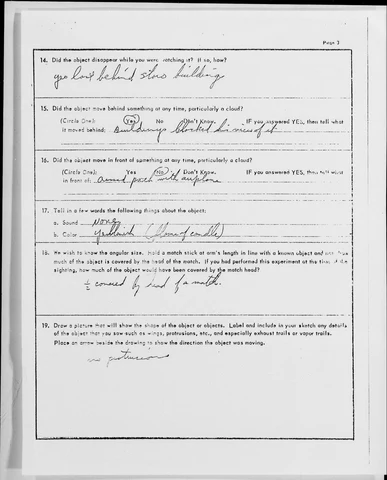 Page 3
14. Did the object disappear while you were watching it? If so, how?
yes lost behind store building
15. Did the object move behind something at any time, particularly a cloud?
(Circle One): Yes No Don't Know. IF you answered YES, then tell what
it moved behind: Buildings blocked his view of it
16. Did the object move in front of something at any time, particularly a cloud?
(Circle One): Yes No Don't Know. IF you answered YES, then tell what
in front of: with airplane
17. Tell in a few words the following things about the object:
a. Sound None
b. Color Yellowish (flame of candle)
18. We wish to know the angular size. Hold a match stick at arm's length in line with a known object and note how
much of the object is covered by the head of the match. If you had performed this experiment at the time of the
sighting, how much of the object would have been covered by the match head?
½ covered by head of a match.
19. Draw a picture that will show the shape of the object or objects. Label and include in your sketch any details
of the object that you saw such as wings, protrusions, etc., and especially exhaust trails or vapor trails.
Place an arrow beside the drawing to show the direction the object was moving.
no protrusions